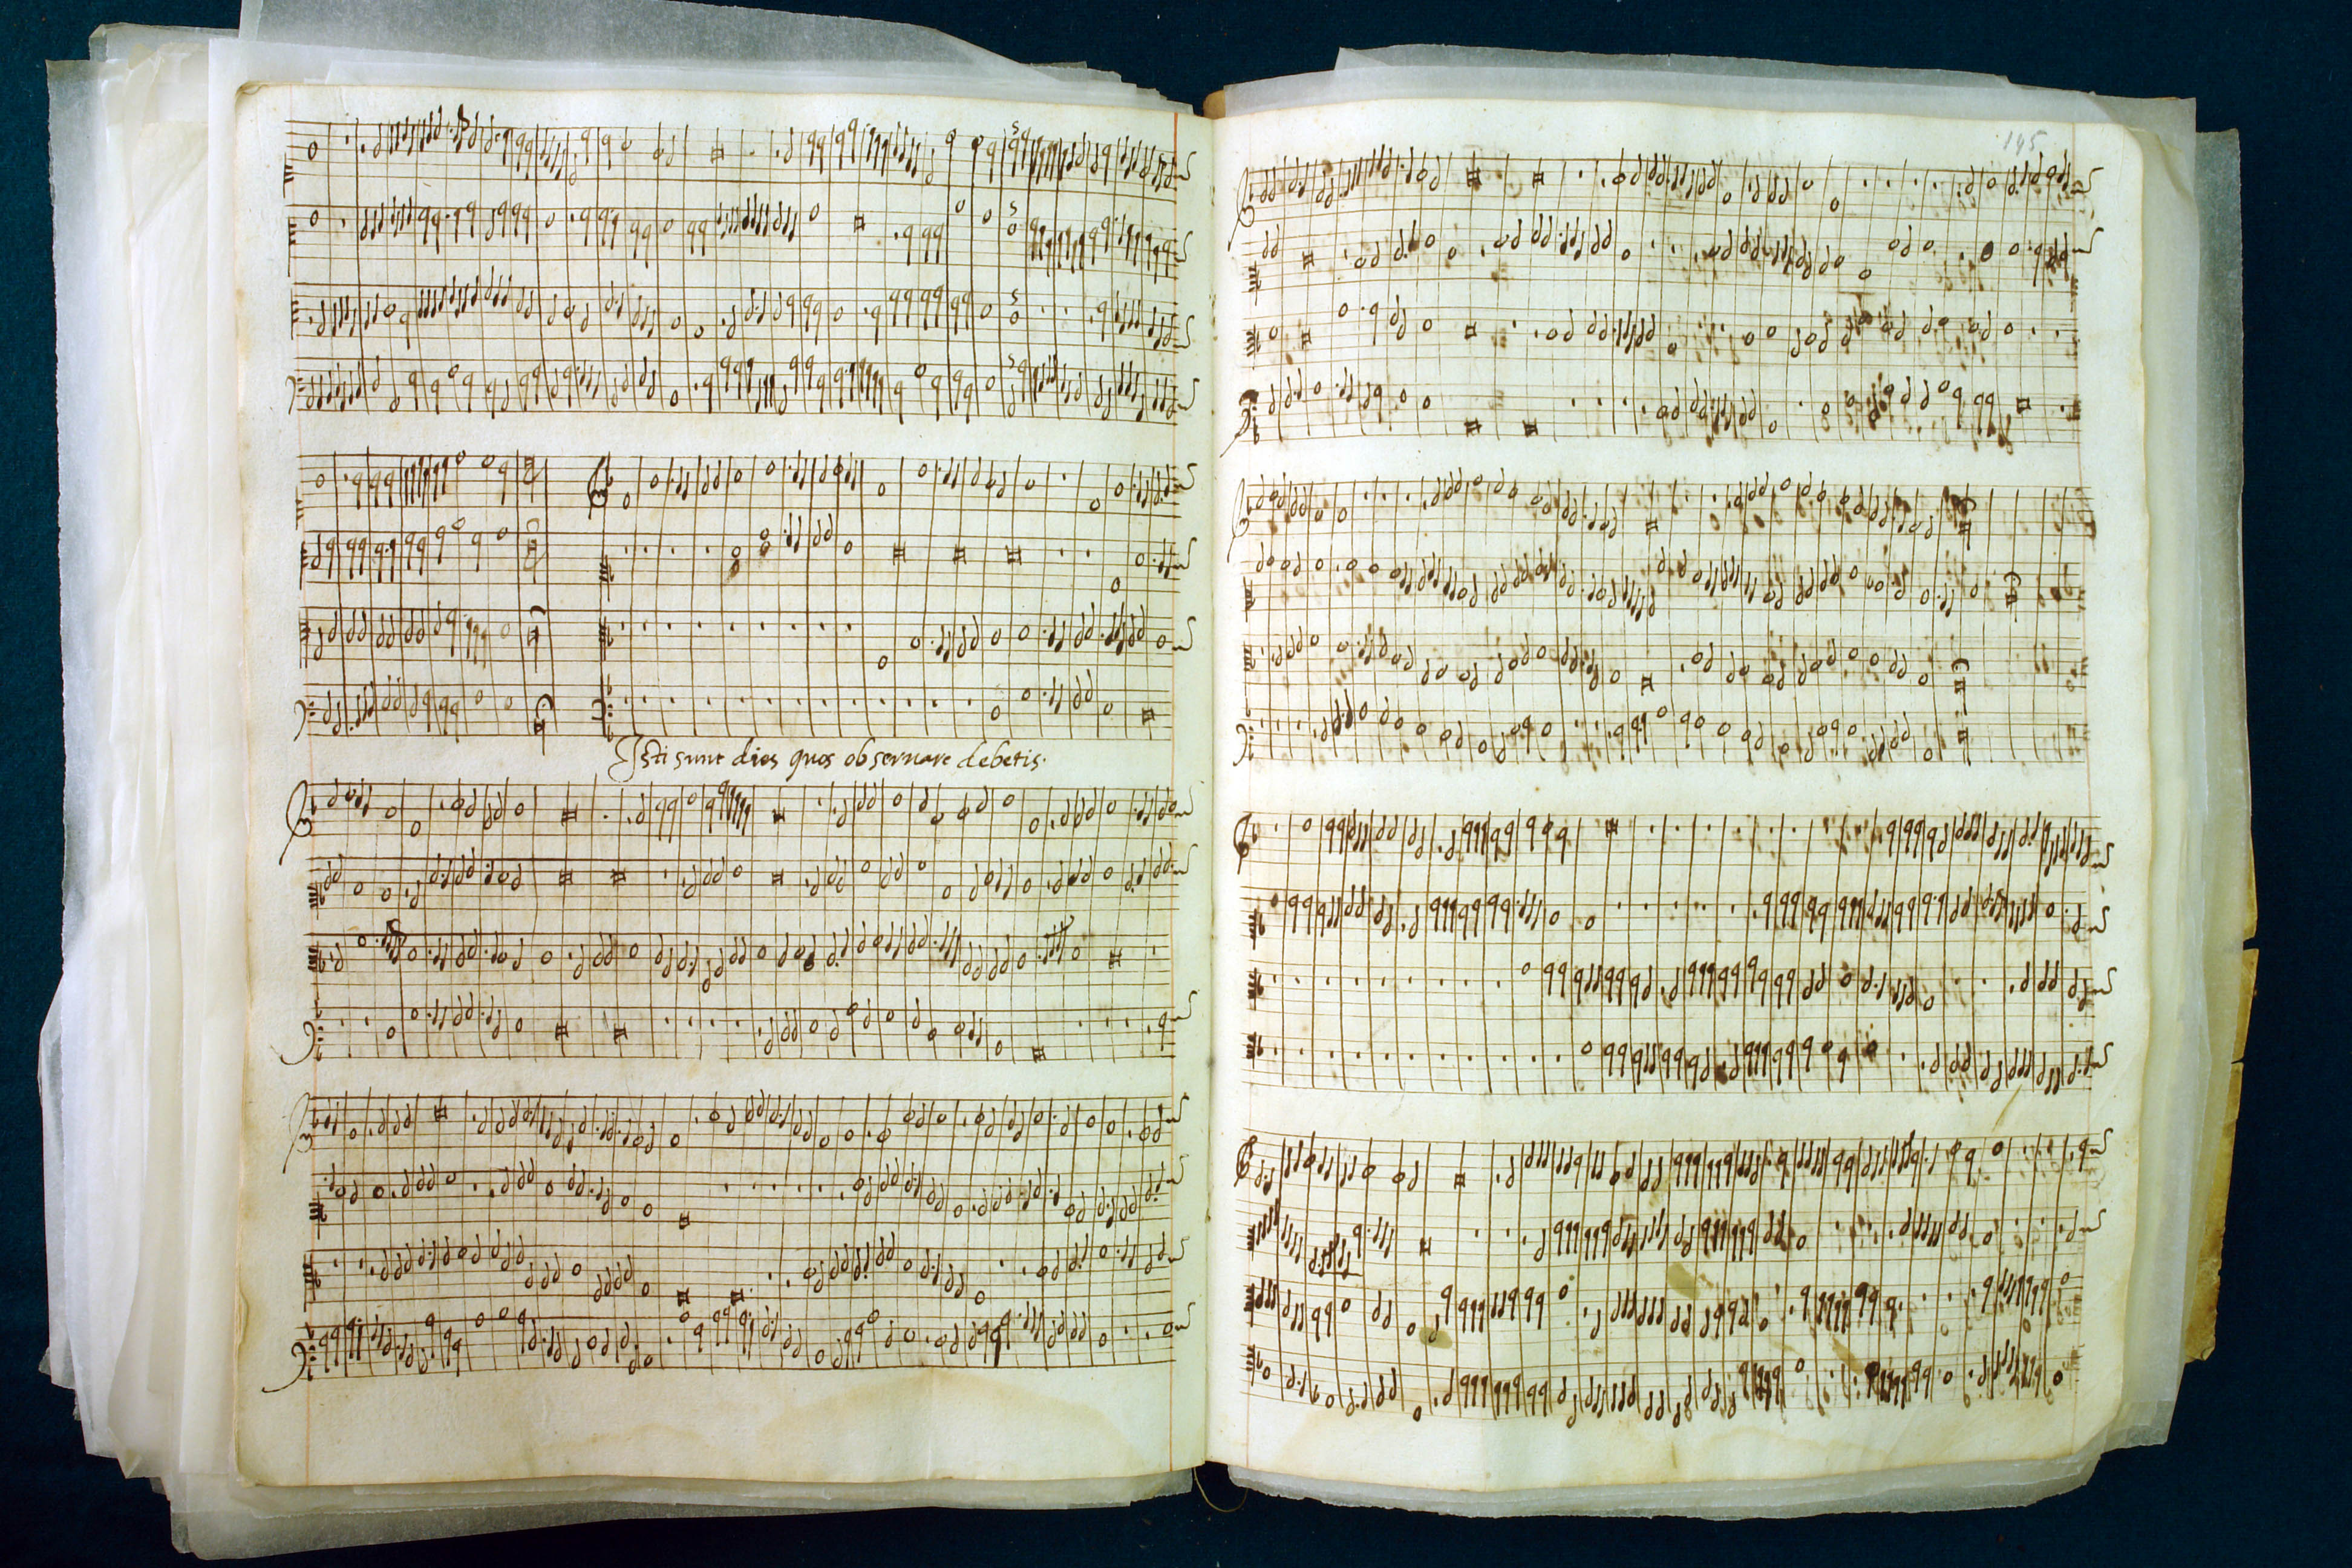 Isti sunt dies quos obseruare debetis.
145